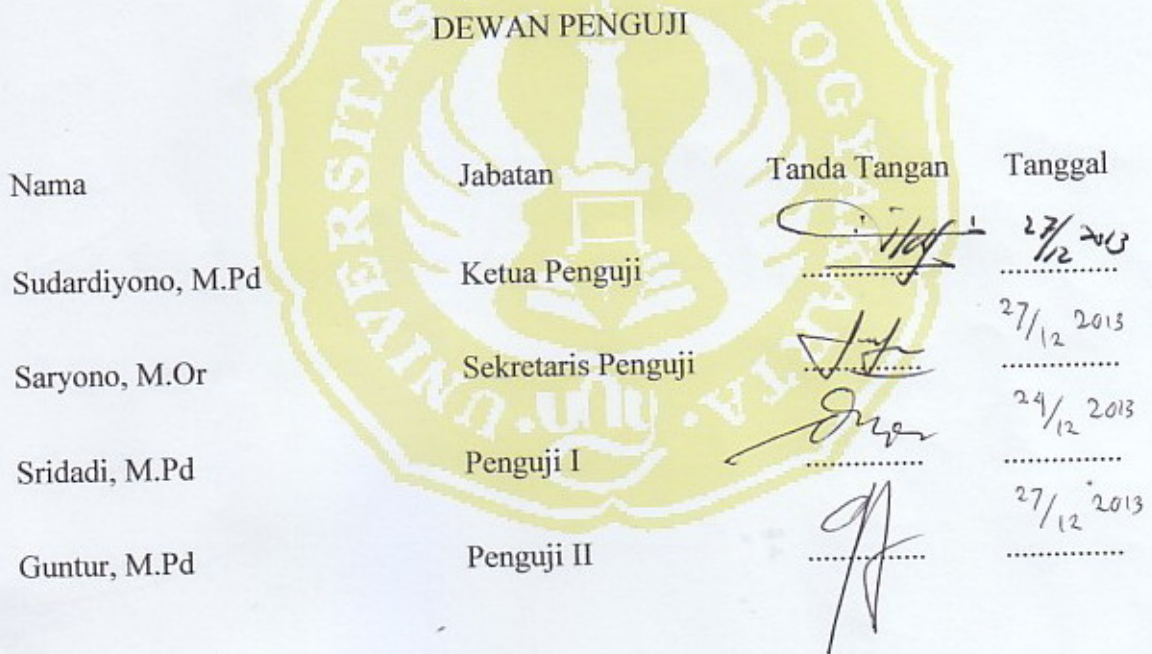 DEWAN PENGUJI
Nama Jabatan Tanda Tangan Tanggal
Sudardiyono, M.Pd Ketua Penguji .............. 27/12 2013
Saryono, M.Or Sekretaris Penguji .............. 27/12 2013
Sridadi, M.Pd Penguji I .............. 24/12 2013
Guntur, M.Pd Penguji II .............. 27/12 2013
UNIVERSITAS YOGYAKARTA